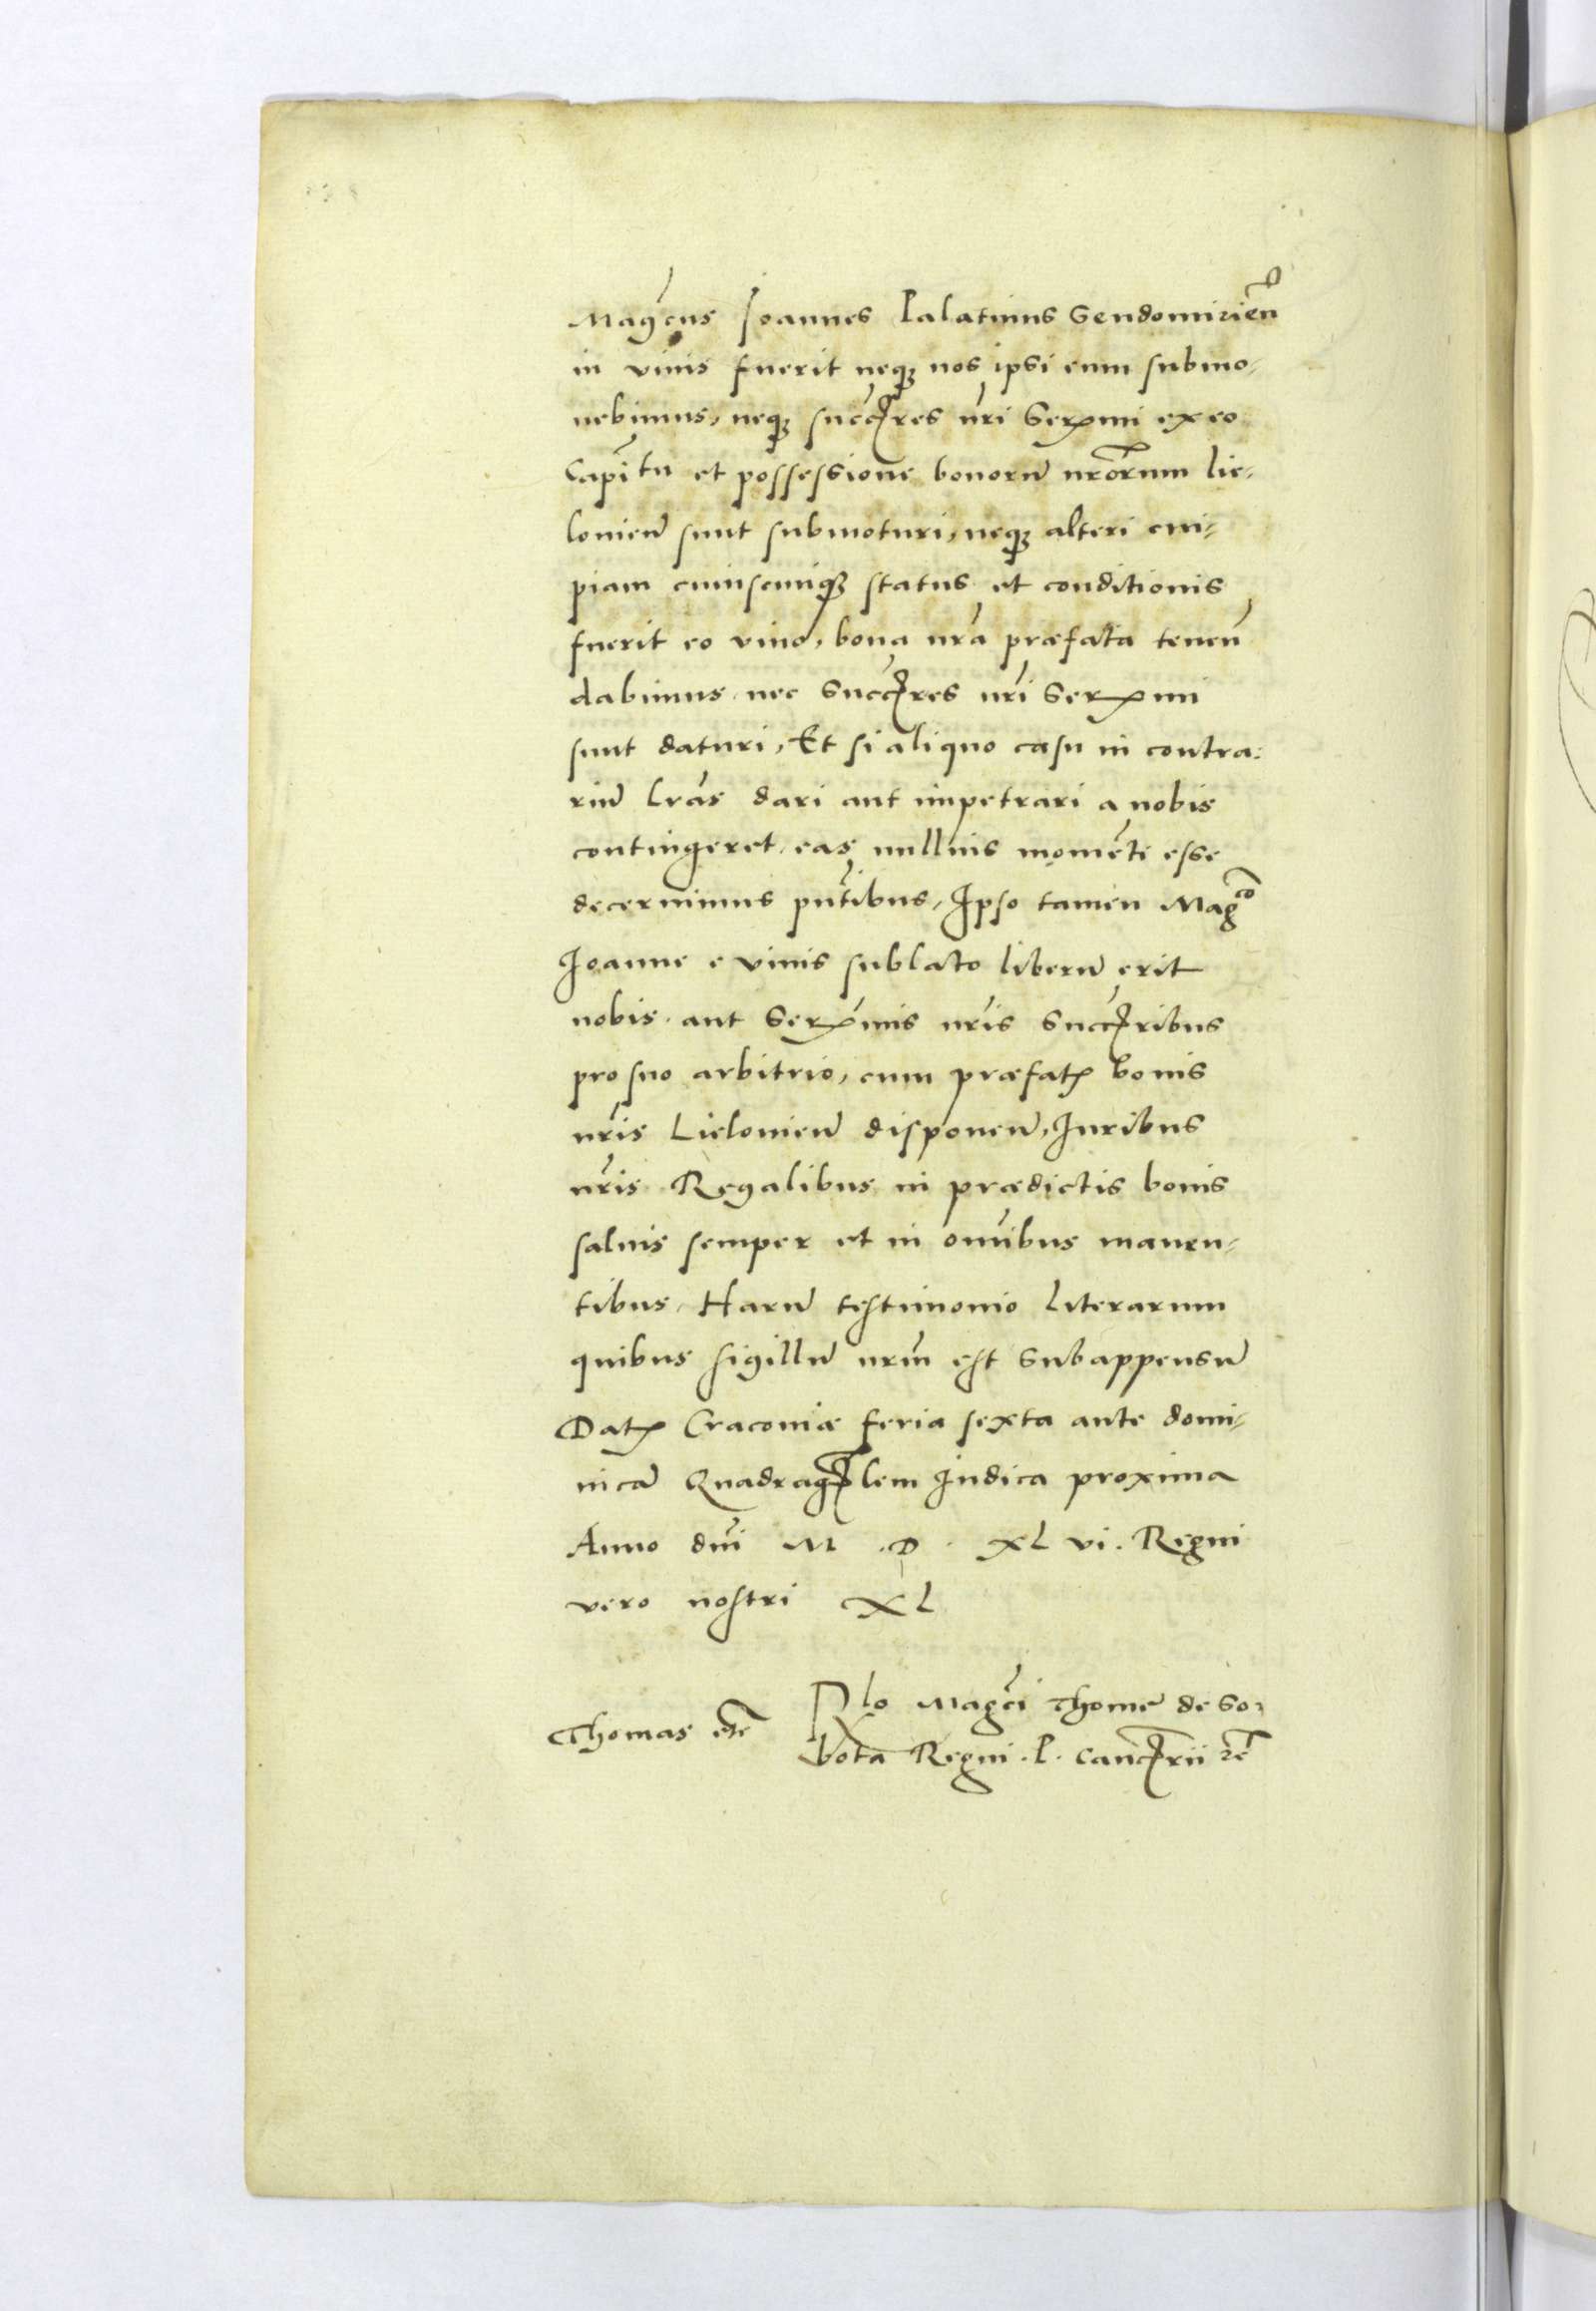 Magcus Joannes Palatinus Sendomirien
in vivis fuerit neqz nos ipsi eum submo-
vebimus, neqz succres nri Sermi ex eo
Capitu et possessione bonoru nrorum Lie-
lonien sunt submoturi, neqz alteri cui-
piam cuiuscunqz status et conditionis
fuerit eo vivo, bona nra præfata tenen
dabimus nec Succres nri Sermi
sunt daturi, Et si aliquo casu in contra-
riu lras dari aut impetrari a nobis
contingeret, eas nullius momēti esse
decernimus pntibus, Ipso tamen Magco
Joanne e vivis sublato liberu erit
nobis aut Sermis nris Succribus
pro suo arbitrio, cum præfat bonis
nris Lielonien disponen, Juribus
nris Regalibus in prædictis bonis
salvis semper et in omibus manen-
tibus, Haru testimonio literarum
quibus sigillu nrm est Subappensu
Dat Cracoviæ feria sexta ante domi-
nica Quadraglem Judica proxima
Anno dni M . D . XL vi . Regni
vero nostri XL
Rlo Magci Thome de So-
Thomas etc bota Regni . P . Cancrii rc